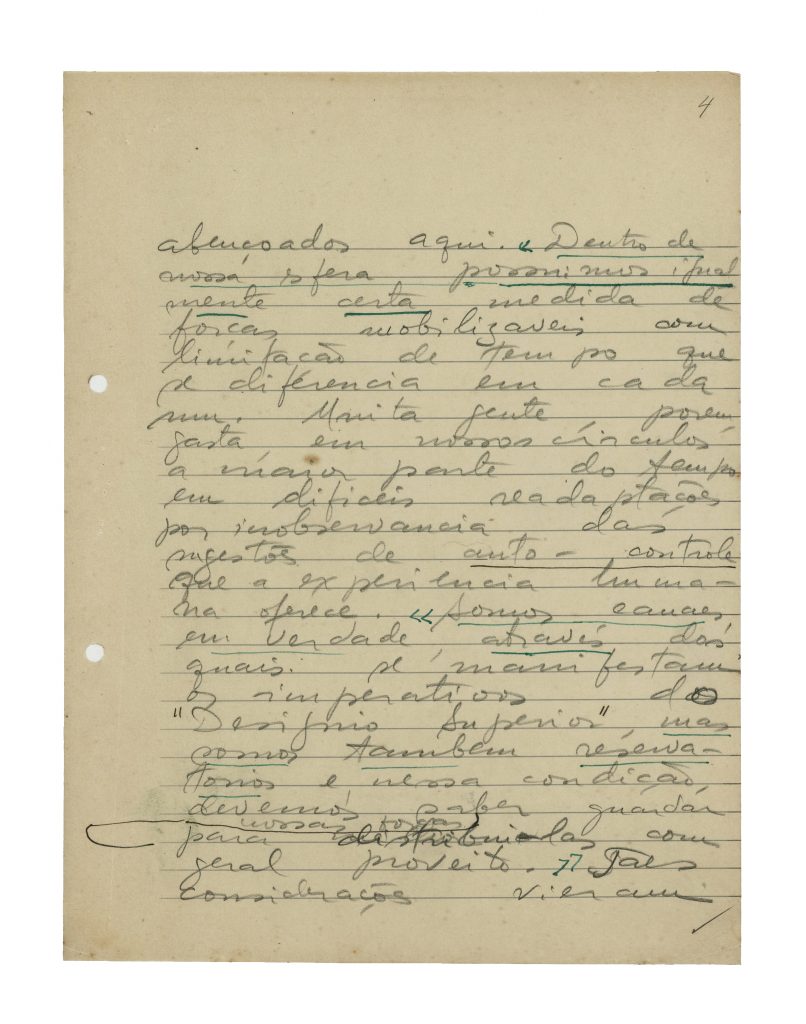 4
abençoados aqui. « Dentro de
nossa esfera possuimos igual
mente certa medida de
forças mobilizaveis com
limitação de tempo que
se diferencia em cada
um. Muita gente, porem,
gasta em nossos circulos
a maior parte do tempo
em dificeis readaptações
por inobservancia das
sugestões de auto-controle
que a experiencia huma-
na oferece. « Somos canaes
em verdade, através dos
quais se manifestam
os imperativos do
"Designio Superior", mas
somos tambem reserva-
torios e nessa condição
devemos saber guardar
nossas forças
para distribui-las com
geral proveito. » Taes
considerações vieram